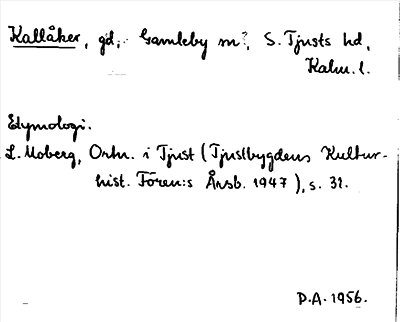 Kallåker, gd, Gamleby sn, S. Tjusts hd,
Kalm. l.
Etymologi.
L. Moberg, Ortn. i Tjust (Tjustbygdens Kultur-
hist. Fören:s Årsb. 1947), s. 32.
D.A. 1956.